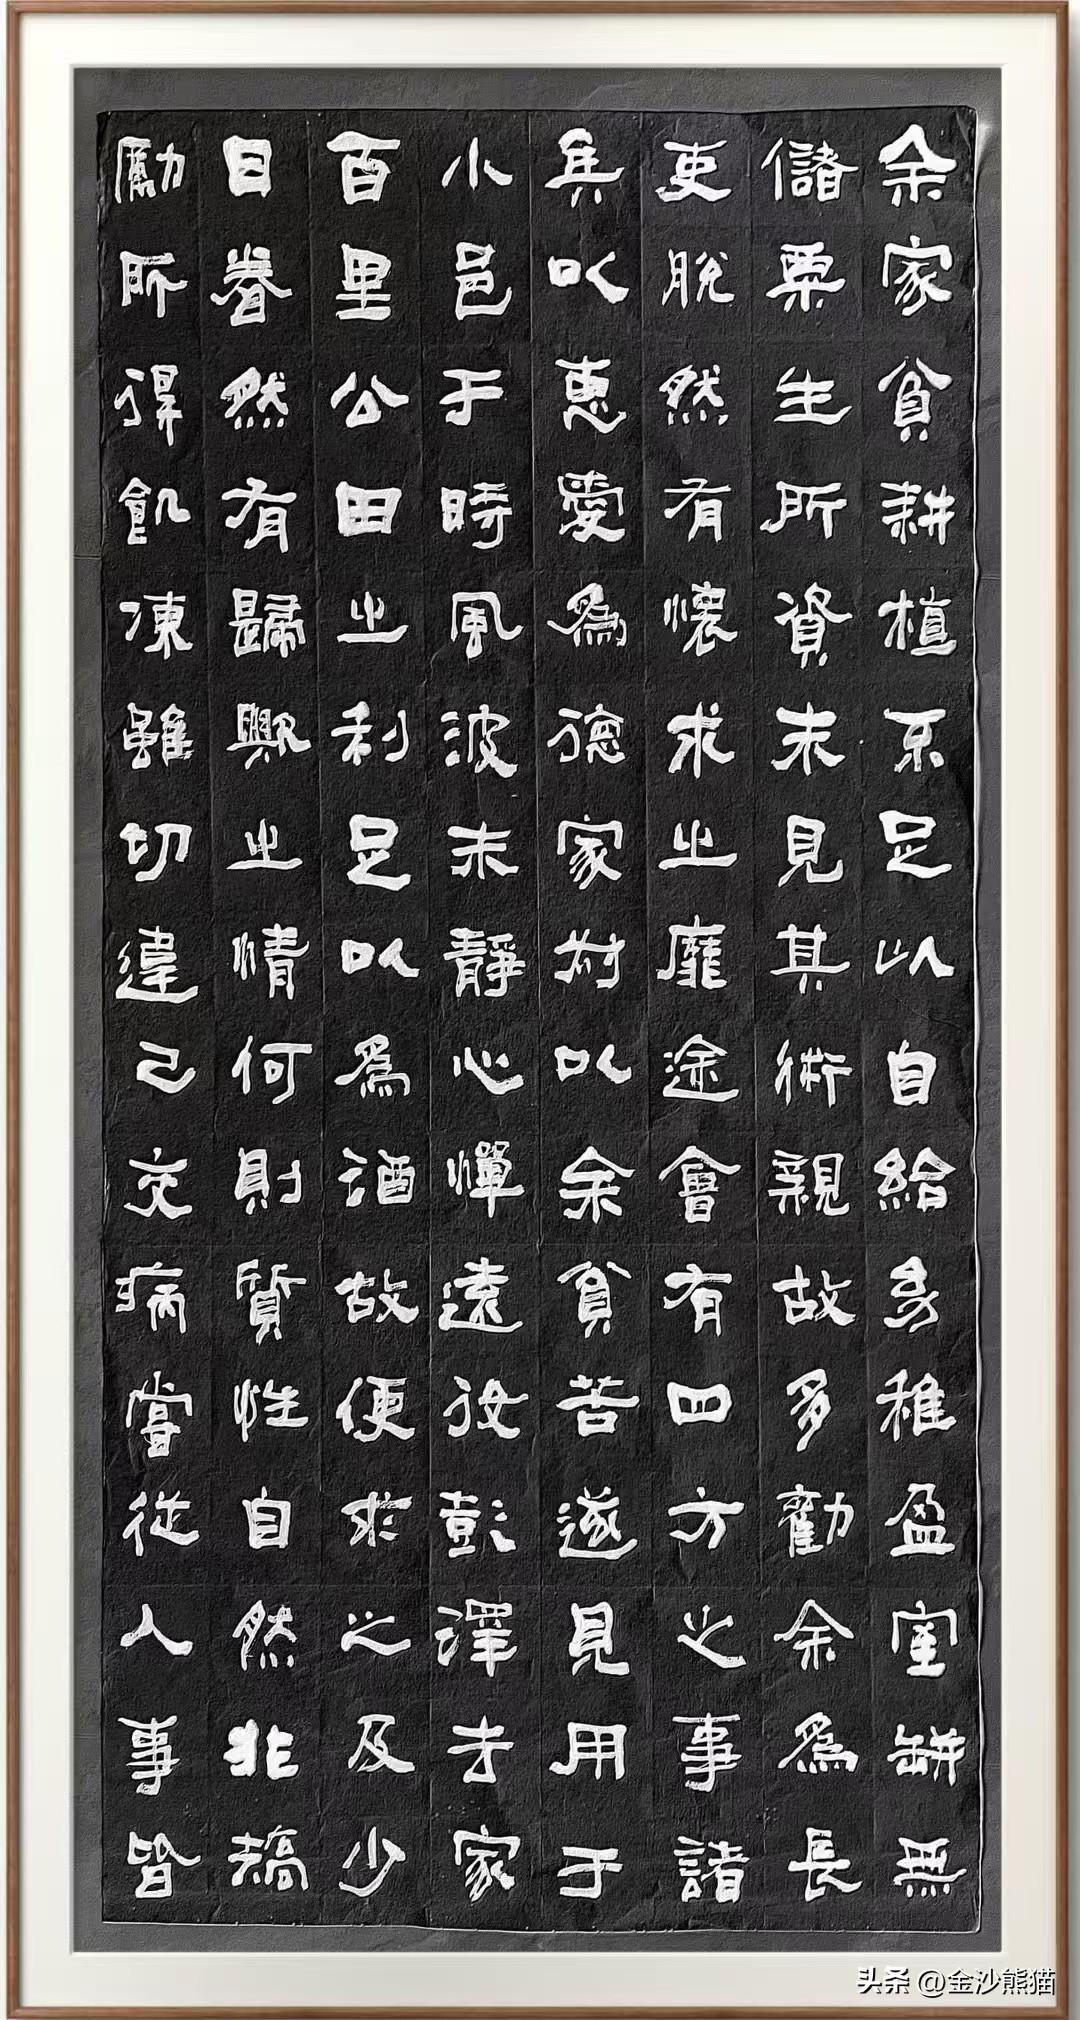 余家貧耕植不足以自給幼稚盈室缾無
儲粟生所資未見其術親故多勸余爲長
吏脫然有懷求之靡途會有四方之事諸
矦以惠愛爲德家叔以余貧苦遂見用于
小邑于時風波未靜心憚遠役彭澤去家
百里公田之利足以爲酒故便求之及少
日眷然有歸歟之情何則質性自然非矯
勵所得飢凍雖切違己交病嘗從人事皆
头条 @金沙熊猫